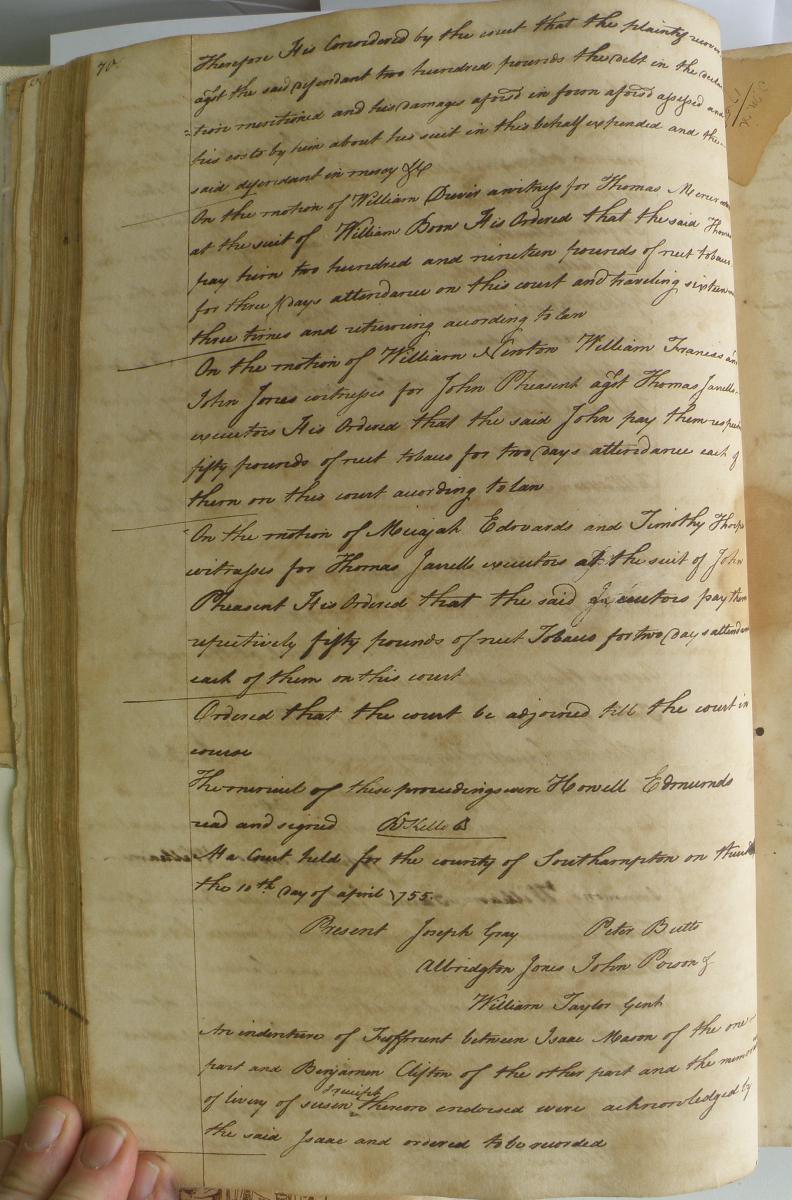 70
Therefore It is Considered by the court that the plaintif recover
agst the said defendant two hundred pounds the debt in the
tion mentioned and his Damages aforsd in form aforsd assessed and
his costs by him about his suit in this behalf expended and the
said defendant in mercy &c
On the motion of William Davis a witness for Thomas Mercer
at the suit of William Boon It is Ordered that the said Thomas
pay him two hundred and nineteen pounds of neet tobacco
for three Days attendance on this court and traveling sixteen
three times and returning according to law
On the motion of William Newton William Francis and
John Jones witnesses for John Pheasent agst Thomas Jarrells
executors It is Ordered that the said John pay them
fifty pounds of neet tobacco for two Days attendance each of
them on this court according to law
On the motion of Micajah Edwards and Timothy Thorp
witnesses for Thomas Jarrells executors at the suit of John
Pheasent It is Ordered that the said Executors pay them
respectively fifty pounds of neet Tobacco for two Days attendance
each of them on this court
Ordered that the court be adjorned till the court in
course
The minuts of these proceedings were Howell Edmunds
read and signed R Kello
At a Court held for the county of Southampton on
the 10th Day of april 1755
Present Joseph Gray Peter Butts
Albridgton Jones John Person &
William Taylor Gent
An indenture of Feoffment between Isaac Mason of the one
part and Benjamen Clifton of the other part and the
of livery of seisin & receipt thereon endorsed were acknowledged by
the said Isaac and ordered to be recorded